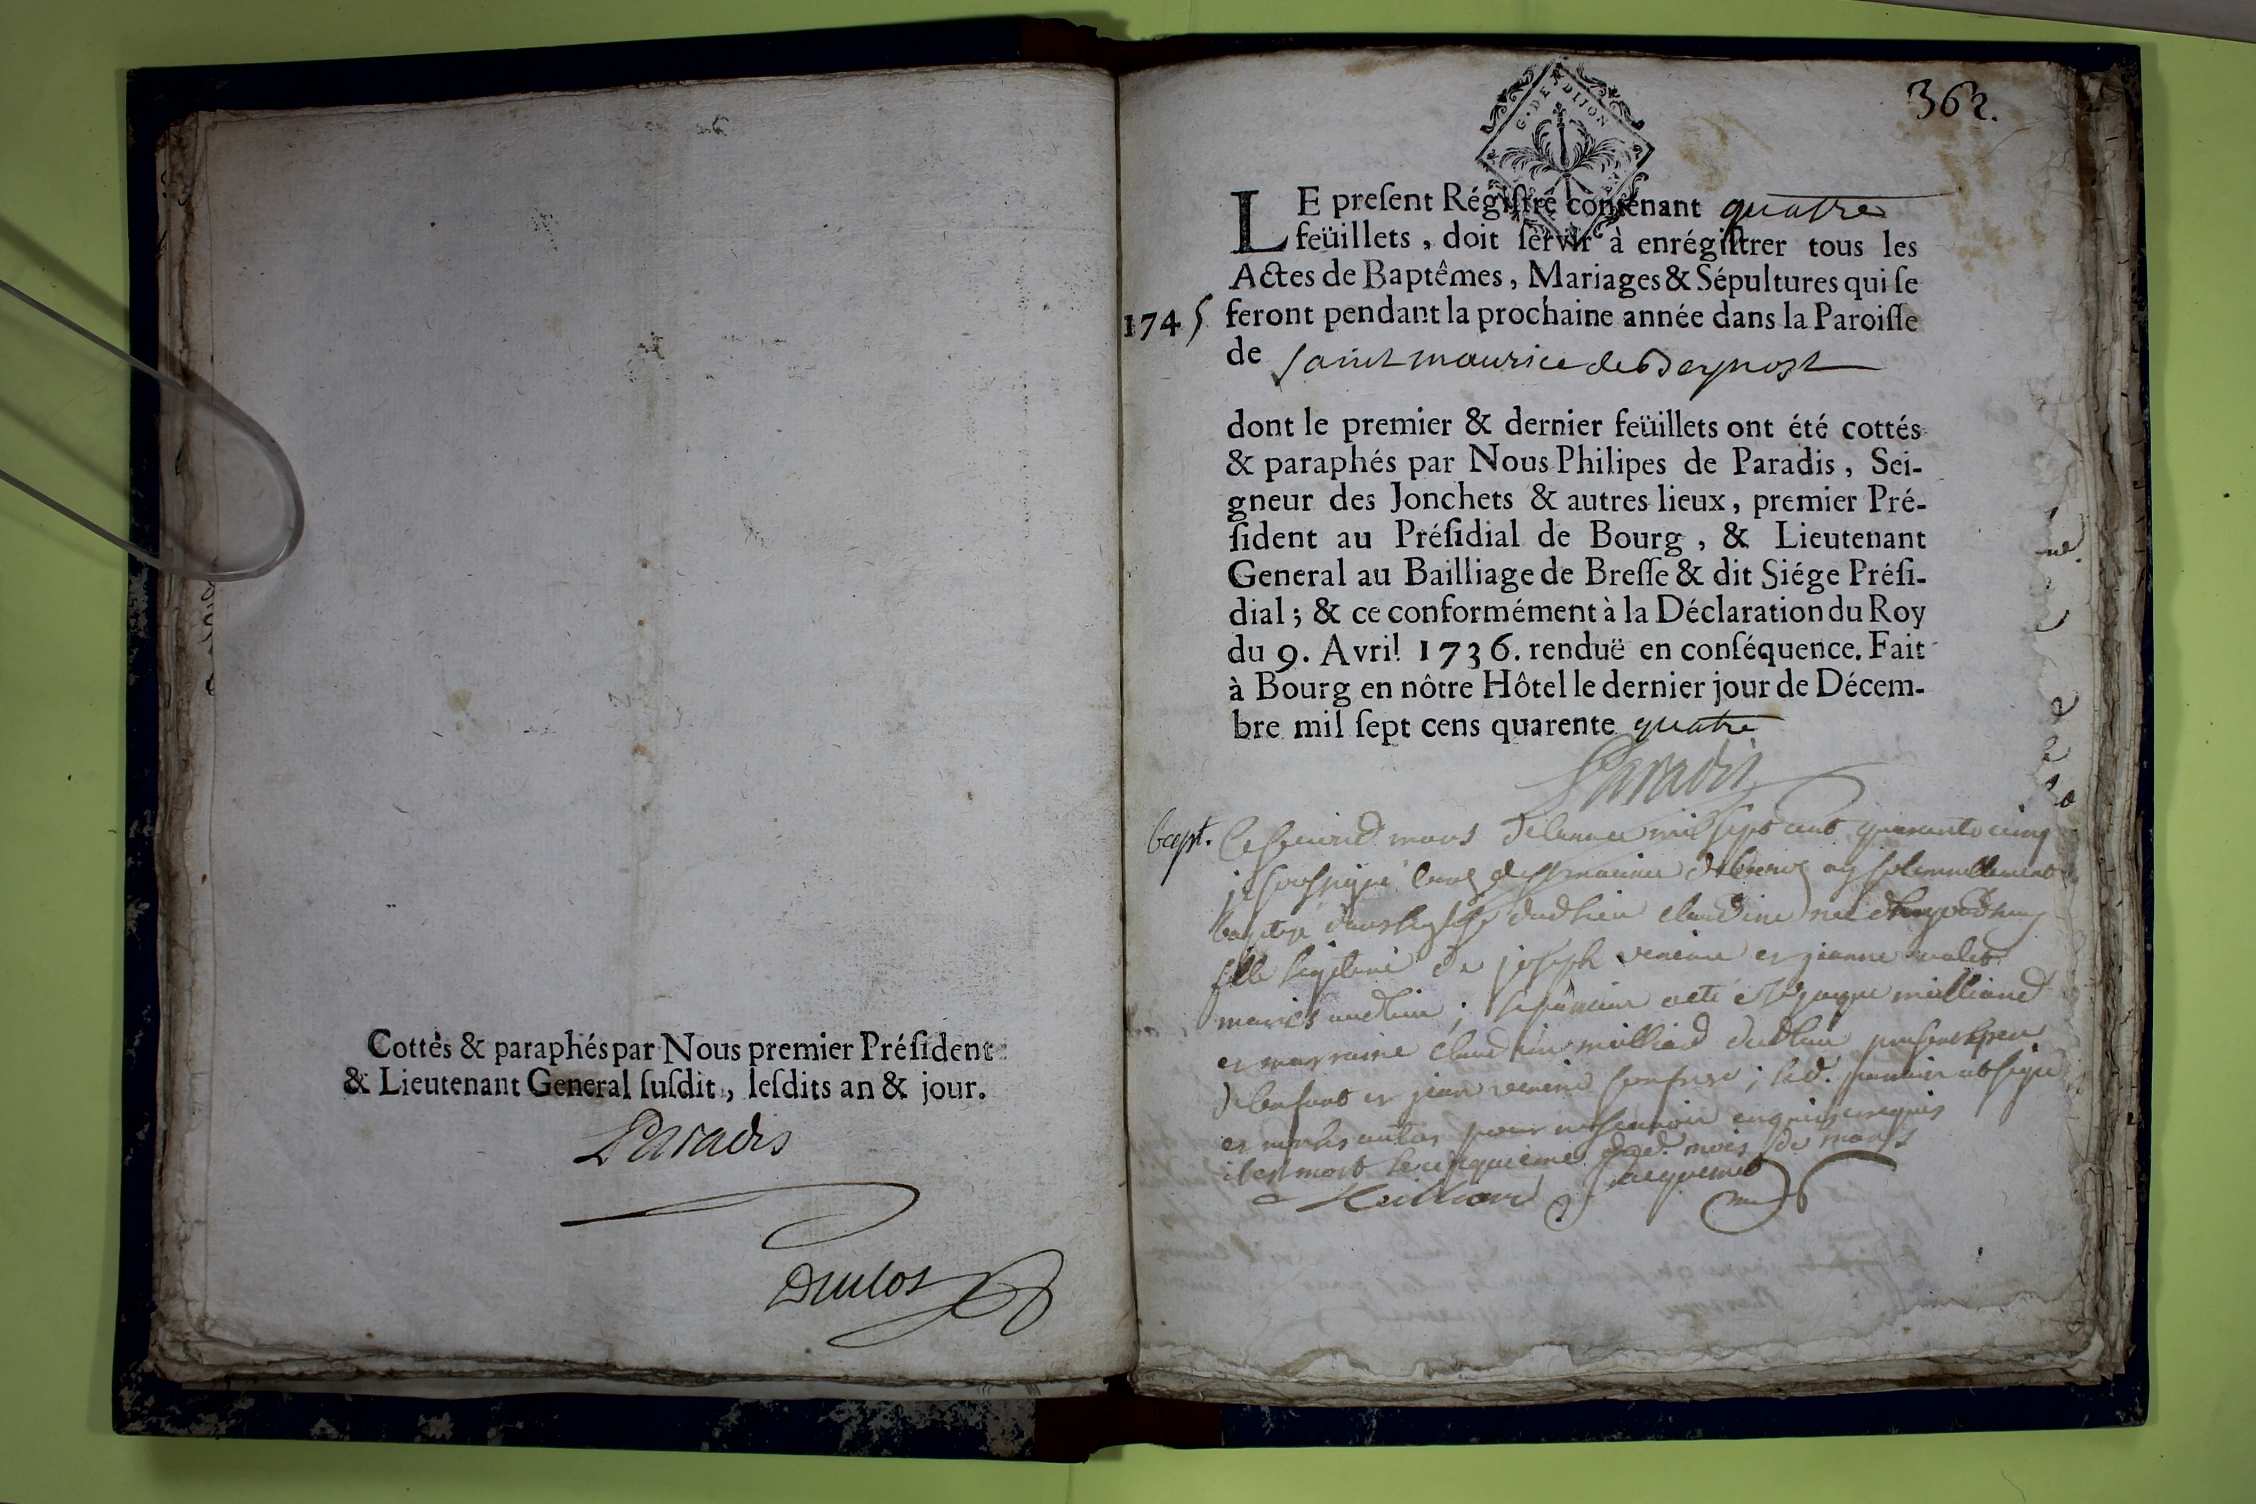 Cottés & paraphés par Nous premier Préſident
& Lieutenant General ſuſdit, leſdits an & jour.
Paradis
Duclos
362.
G. DE DIJON
LE preſent Régiſtre contenant quatre
feüillets, doit ſervir à enrégiſtrer tous les
Actes de Baptêmes, Mariages & Sépultures qui ſe
1745 feront pendant la prochaine année dans la Paroiſſe
de saint maurice de Beynost
dont le premier & dernier feüillets ont été cottés
& paraphés par Nous Philipes de Paradis, Sei-
gneur des Jonchets & autres lieux, premier Pré-
ſident au Préſidial de Bourg, & Lieutenant
General au Bailliage de Breſſe & dit Siége Préſi-
dial; & ce conformément à la Déclaration du Roy
du 9. Avril 1736. renduë en conſéquence. Fait
à Bourg en nôtre Hôtel le dernier jour de Décem-
bre mil ſept cens quarente quatre
Paradis
bapt. Le second mars de l'annee mil sept cent quarante cinq
je soussigné curé de St maurice de ay solemnellement
baptisé dans l'eglise dudt lieu claudine née
fille legitime de joseph et jeanne
mariés audt lieu; le parrain a été jacque milliand
et marraine claudine milliand dudt lieu presents
de l'enfant et jean son frere; led. parrain a signé
et non les autres pour ne sçavoir enquis et requis
il est mort le cinquieme dud. mois de mars
Milliand Jacquemet